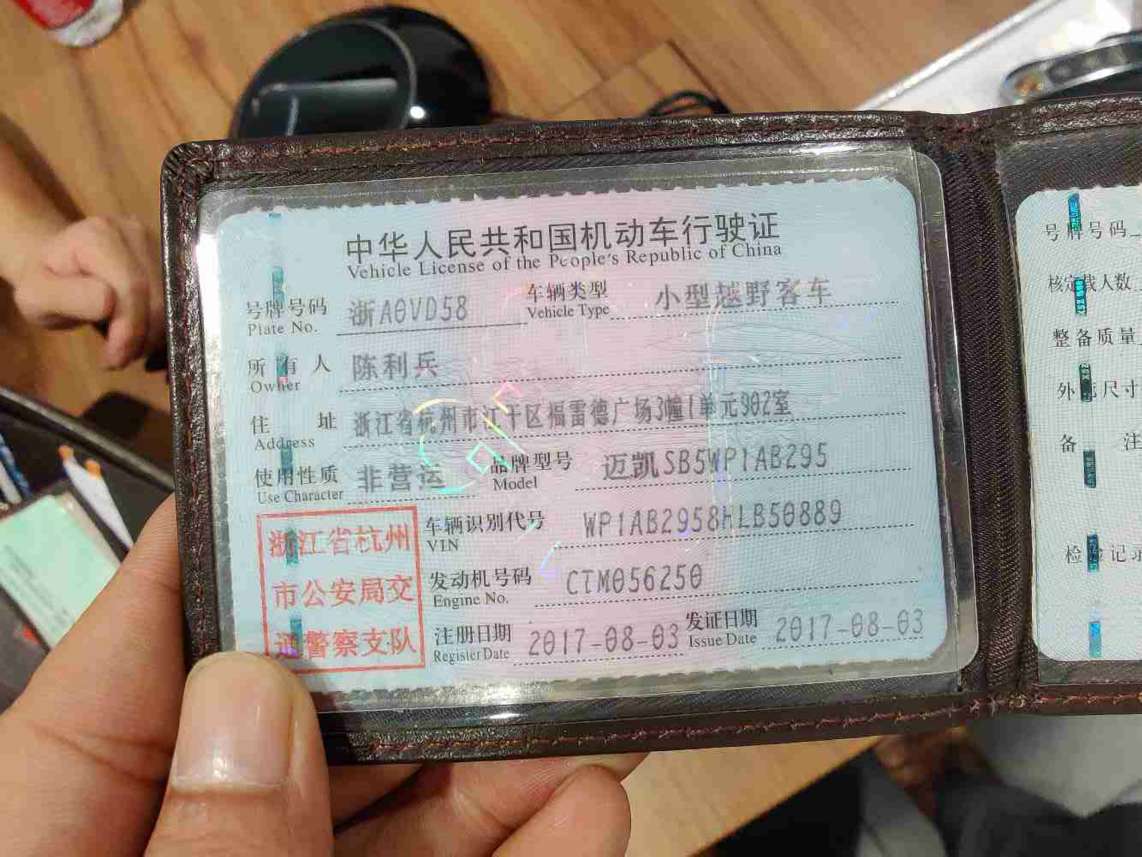 中华人民共和国机动车行驶证
Vehicle License of the People's Republic of China
号牌号码 浙A0VD58 车辆类型 小型越野客车
Plate No. Vehicle Type
所有人 陈利兵
Owner
住址 浙江省杭州市江干区福雷德广场3幢1单元902室
Address
使用性质 非营运 品牌型号 迈凯SB5WP1AB295
Use Character Model
浙江省杭州
市公安局交
通警察支队
车辆识别代号 WP1AB2958HLB50889
VIN
发动机号码 CTM056250
Engine No.
注册日期 2017-08-03 发证日期 2017-08-03
Register Date Issue Date
号牌号码
核定载人数
整备质量
外廓尺寸
备注
检验记录